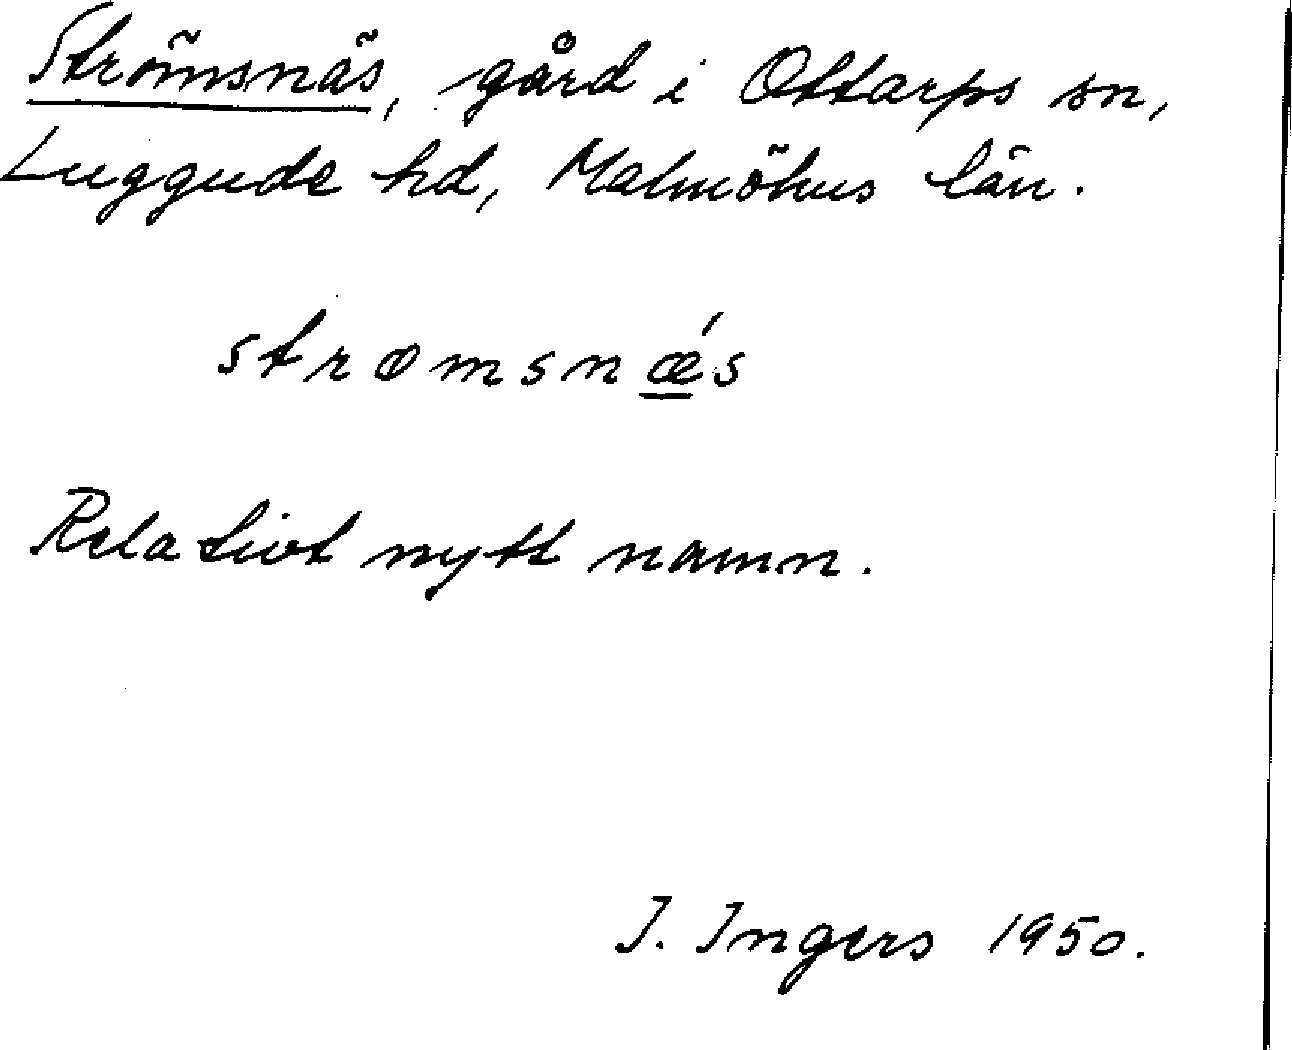 Strömsnäs, gård i Ottarps sn,
Luggude hd, Malmöhus län.
strœmsnǽs
Relativt nytt namn.
I. Ingers 1950.